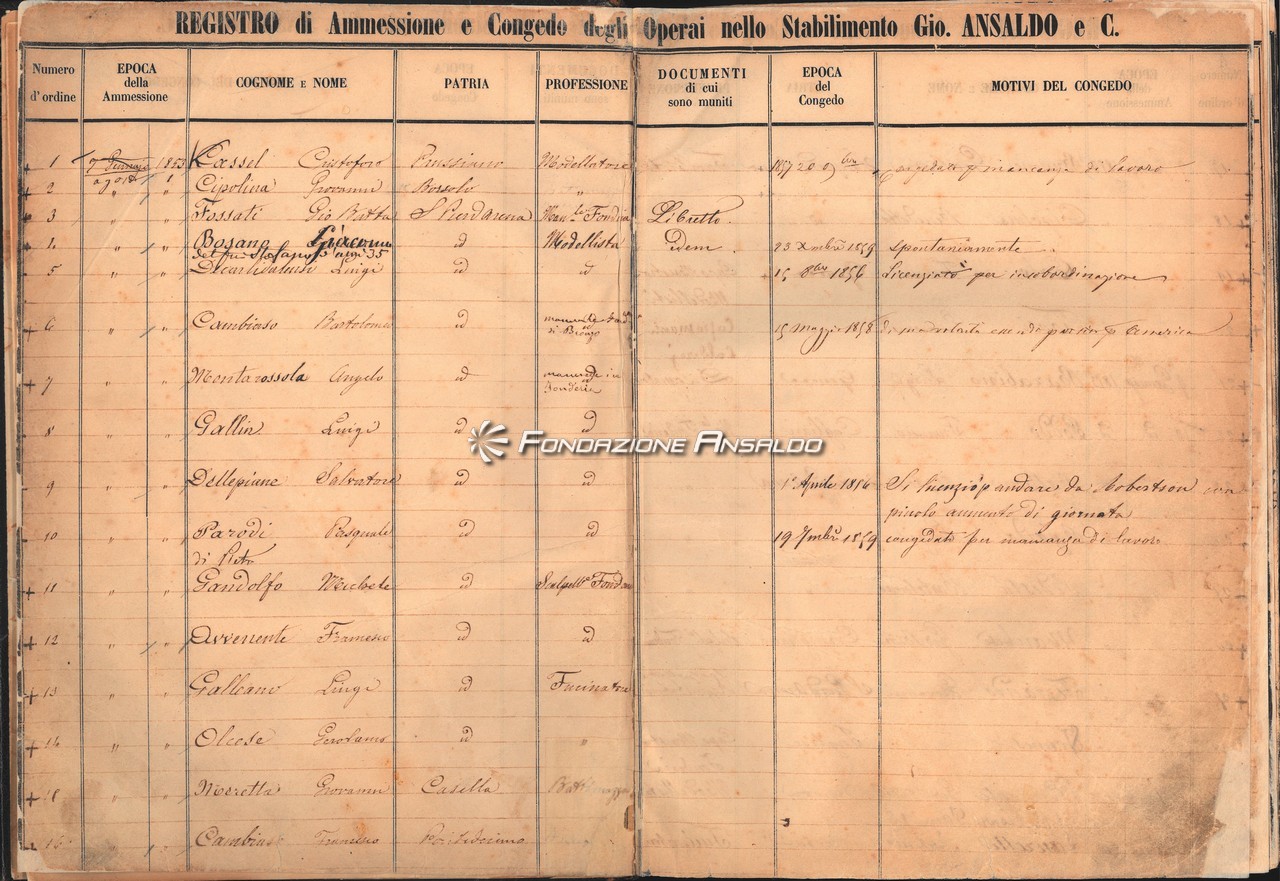 REGISTRO di Ammessione e Congedo degli Operai nello Stabilimento Gio. ANSALDO e C.
Numero d'ordine EPOCA della Ammessione COGNOME E NOME PATRIA PROFESSIONE DOCUMENTI di cui sono muniti EPOCA del Congedo MOTIVI DEL CONGEDO
1 7 1853 Cassel Cristoforo Prussiano Modellatore 1857 20 di lavoro
agosto
2 " " Cipolina Giovanni Borsolo "
3 " " Fossati Gio Batta S Pierdarena Libretto.
4 " " Bosano Giacomo id Modellista idem 23 Xmbre 1859 spontaniamente
del fu Stefano anni 35
5 " " Luigi id id 15 8bre 1856 Licenziato per insobordinazione
6 " " Cambiaso Bartolomeo id 15 Maggio 1858 America
di Bronzo
7 " " Montarossola Angelo id manuale in
Fonderia
8 " " Gallin Luigi id id
FONDAZIONE ANSALDO
9 " " Dellepiane Salvatore id id 1° Aprile 1856 Si licenziò p andare da Robertson con
piccolo aumento di giornata
10 " " Parodi Pasquale id id 19 7mbre 1859 congedato per mancanza di lavoro
di Pietro
11 " " Gandolfo Michele id
12 " " Avvenente Francesco id id
13 " " Galleano Luigi id Fucinatore
14 " " Olcese Gerolamo id "
" " Meretta Giovanni Casella
" " Cambiaso Francesco Pontedecimo